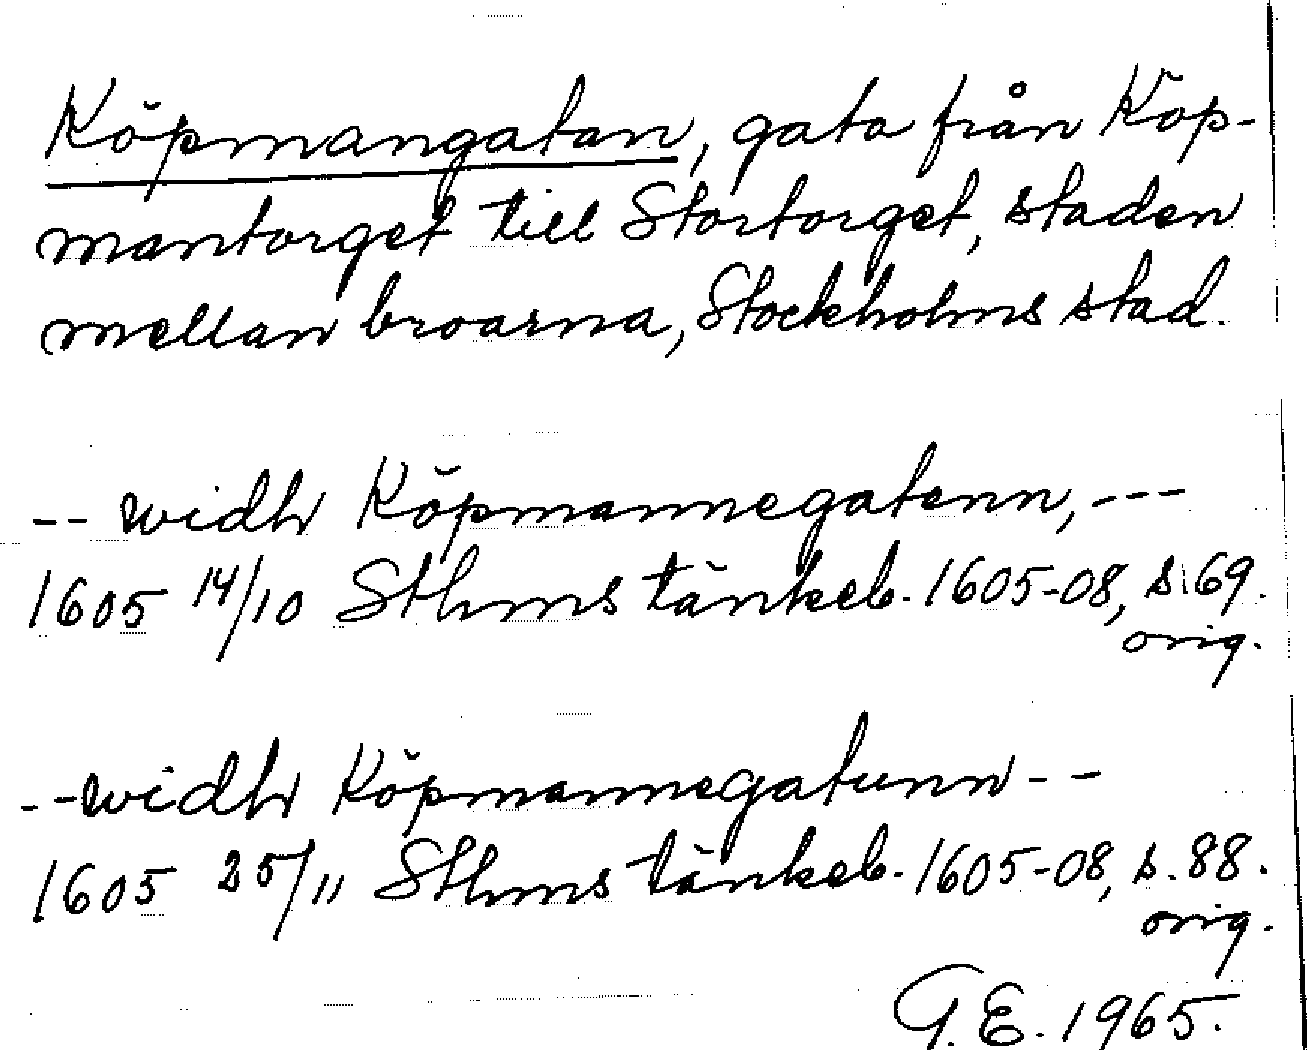 Köpmangatan, gata från Köp-
mantorget till Stortorget, staden
mellan broarna, Stockholms stad.
-- widh Köpmannegatenn, ---
1605 14/10 Sthms tänkeb. 1605-08, s. 69.
orig.
-- widh Köpmannegatunn --
1605 25/11 Sthms tänkeb. 1605-08, s. 88.
orig.
G.E. 1965.